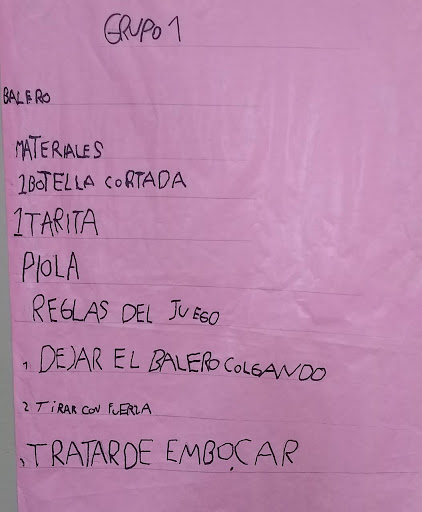 GRUPO 1
BALERO
MATERIALES
1 BOTELLA CORTADA
1 TARITA
PIOLA
REGLAS DEL JUEGO
1 DEJAR EL BALERO COLGANDO
2 TIRAR CON FUERZA
3 TRATAR DE EMBOCAR